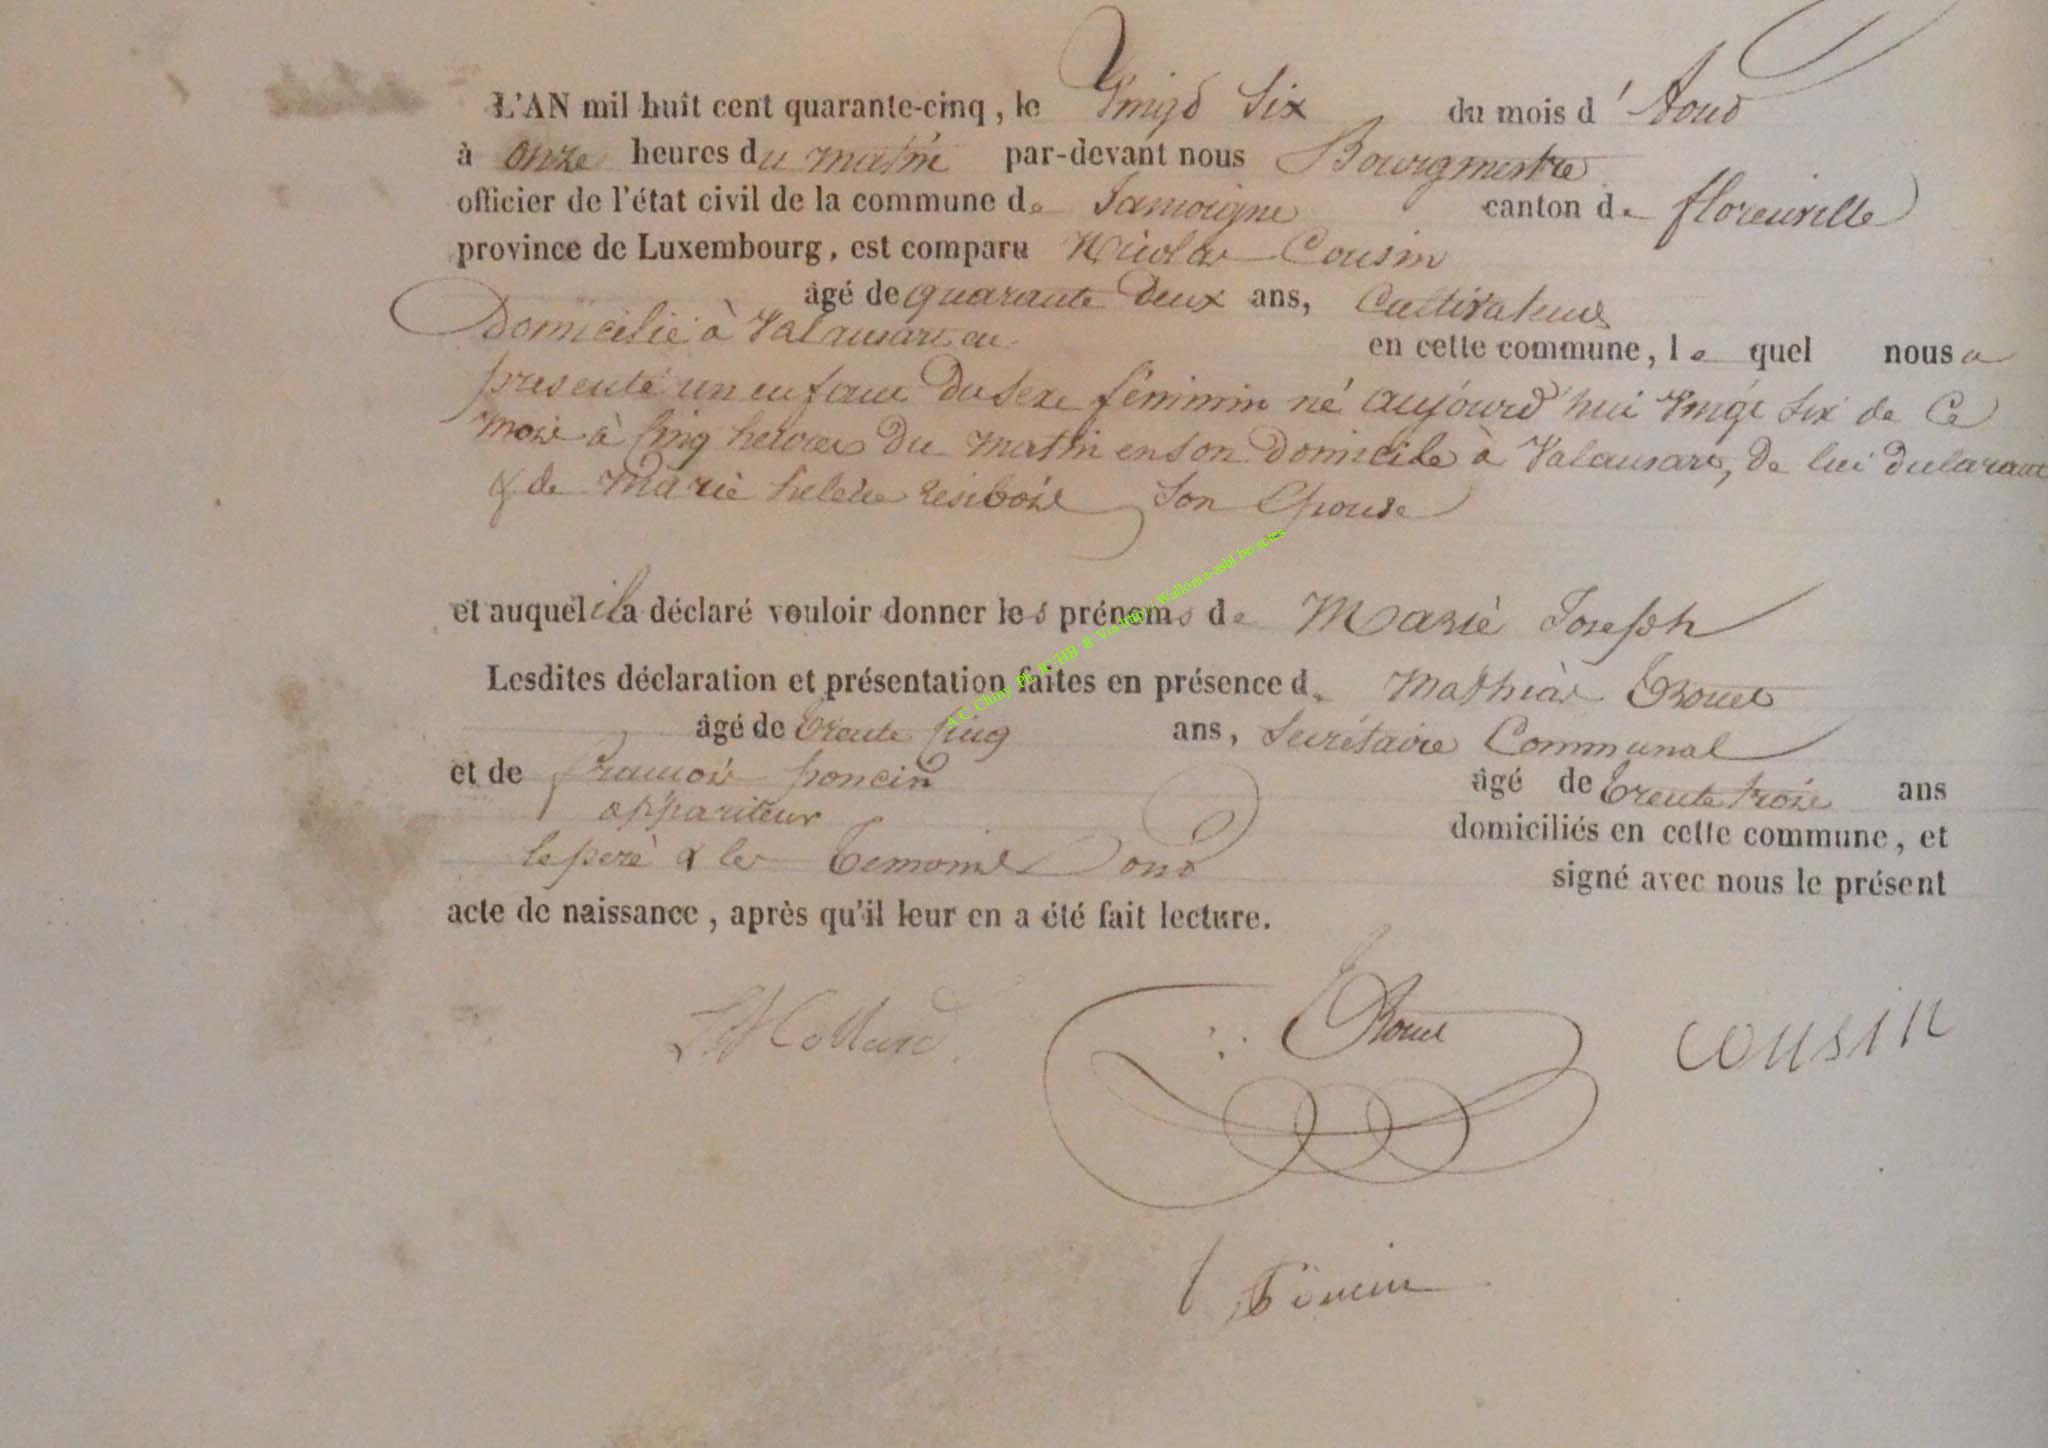 L'AN mil huit cent quarante-cinq, le Vingt Six du mois d'Aout
à onze heures du matin par-devant nous Bourgmestre
officier de l'état civil de la commune de Jamoigne canton de florenville
province de Luxembourg, est comparu Nicolas Cousin
âgé de quarante deux ans, Cultivateur
Domicilié à Valansart en en cette commune, le quel nous a
presenté un enfant du sexe féminin né aujourd'hui Vingt Six de Ce
mois à Cinq heures du matin en son Domicile à Valansart, de lui declarant
& de Marie helene resibois son Epouse
et auquel il a déclaré vouloir donner les prénoms de Marie Joseph
Lesdites déclaration et présentation faites en présence de Mathias
âgé de trente Cinq ans, Secrétaire Communal
et de francois poncin âgé de trente trois ans
appariteur domiciliés en cette commune, et
le pere & les temoins ont signé avec nous le présent
acte de naissance, après qu'il leur en a été fait lecture.
Collard
cousin
Poncin
A.C. Chiny Ph. JC/HB @ Via http://Wallonia-asbl.be/actes